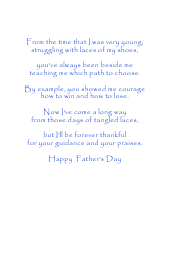 From the time that I was very young,
struggling with laces of my shoes,
you've always been beside me
teaching me which path to choose.
By example, you showed me courage
how to win and how to lose.
Now I've come a long way
from those days of tangled laces,
but I'll be forever thankful
for your guidance and your praises.
Happy Father's Day